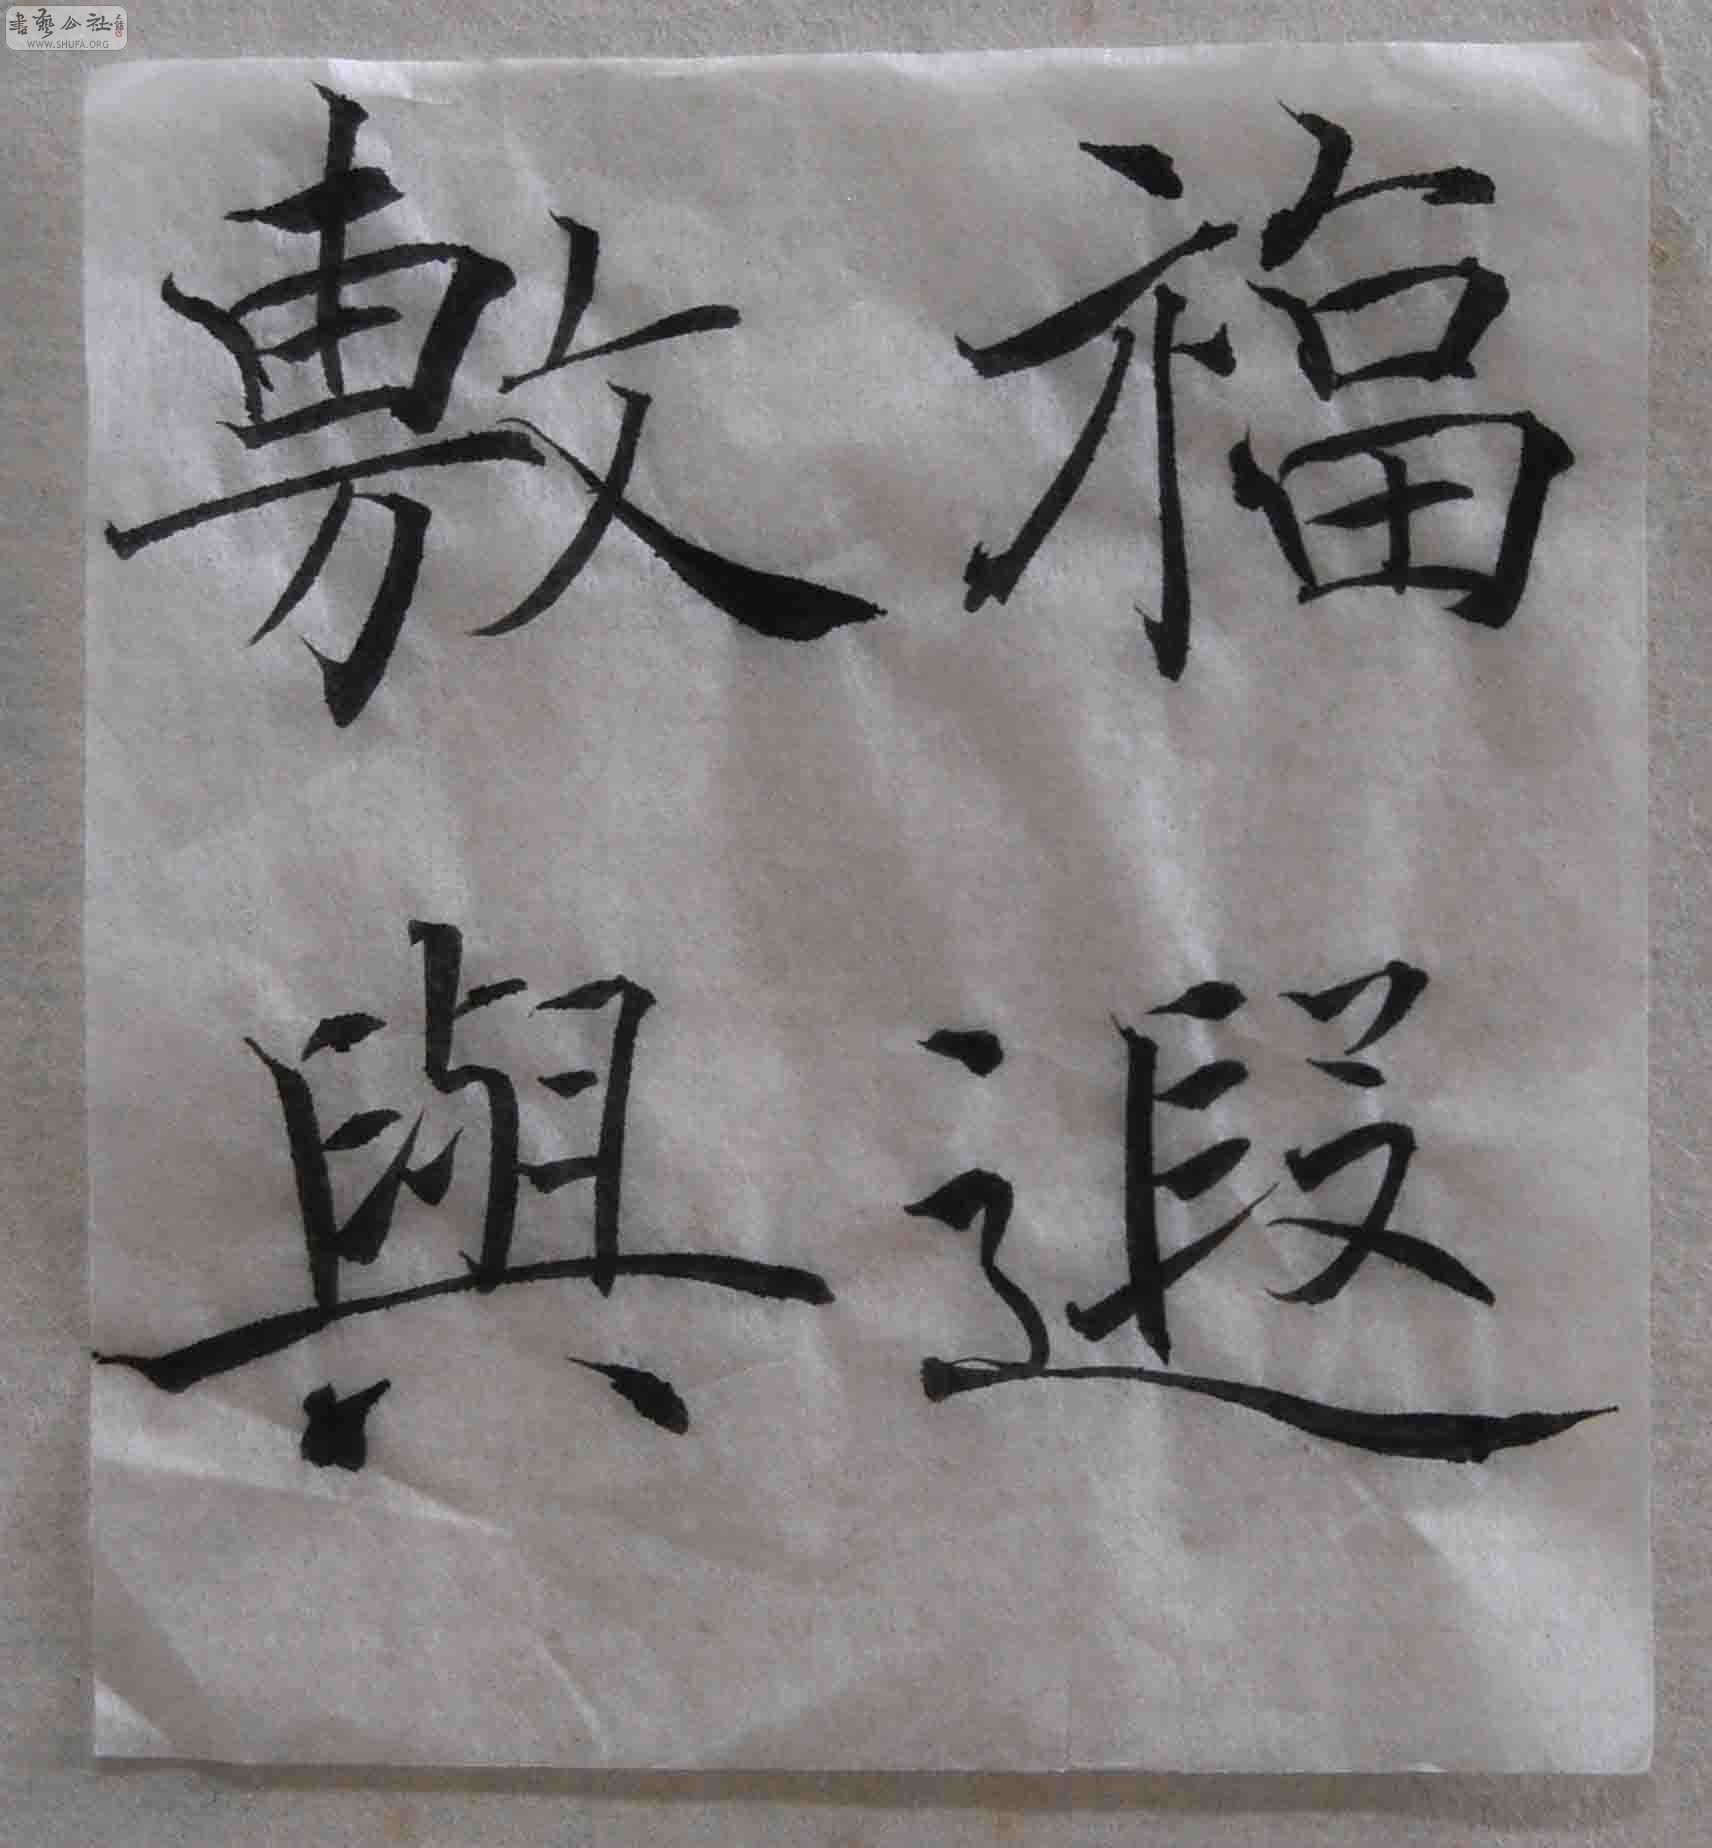 福遐
敷與
書藝公社
WWW.SHUFA.ORG